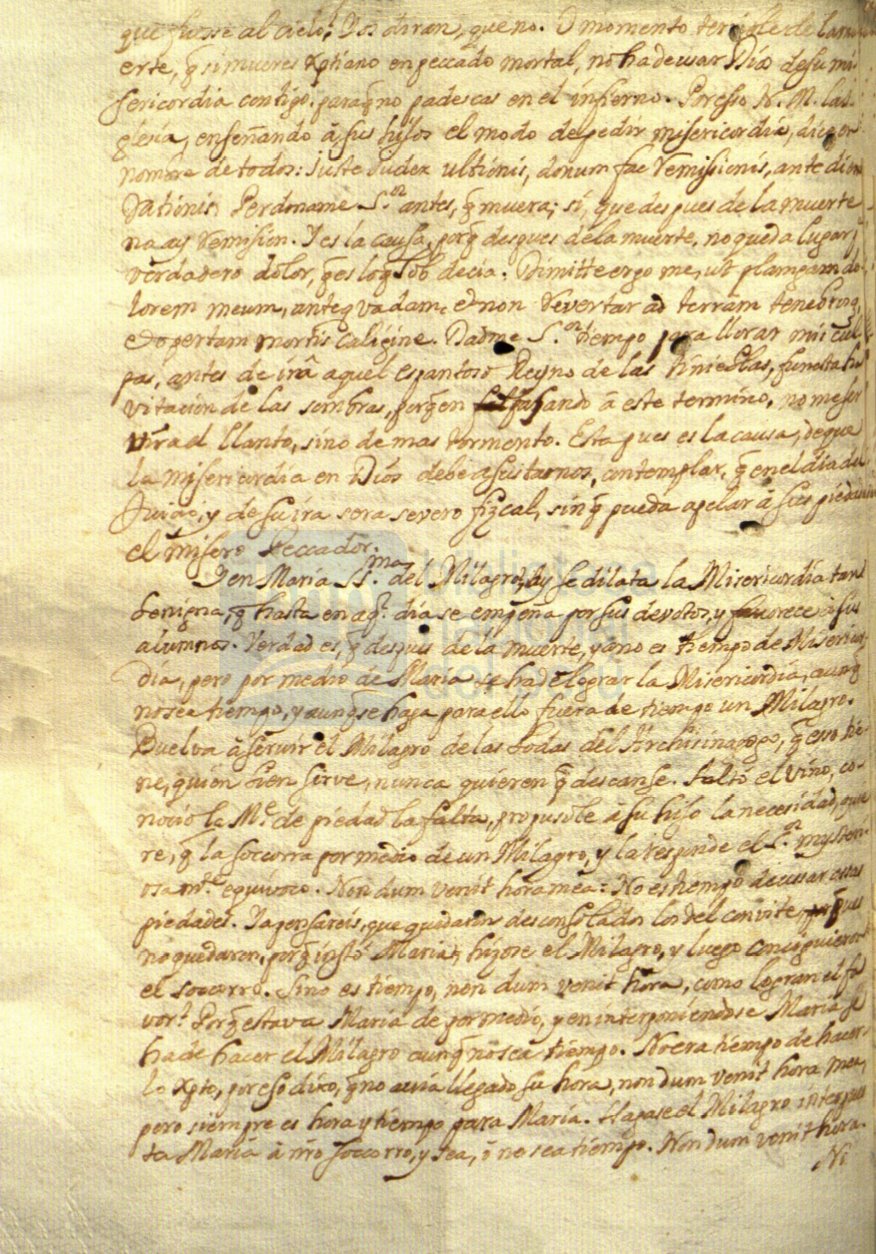 que fuesse al cielo? Vos diran, que no. O momento terrible de la mu
erte, q̃ si mueres Xptiano en peccado mortal, no ha de usar Dios de su mi
sericordia contigo. paraq̃ no padescas en el infierno. Por esso N. M. la I
glesia, enseñando â sus hijos el modo de pedir misericordia, dize en
nombre de todos: Juste Judex ultionis, donum fac remissionis, ante diem
rationis. Perdoname S.or antes, q̃ muera; si, que despues de la muerte
no ay remision. Y es la causa, porq̃ despues de la muerte, no queda lugar
verdadero dolor, q̃ es loq̃ Iob decia. Dimitte ergo me, ut plangam do
lorem meum, anteq vadam, et non revertar ad terram tenebrosa,
et opertam mortis caligine. Dadme S.or tiempo para llorar mis cul
pas, antes de ir â aquel espantoso Reyno de las tinieblas, funesta ha
vitacion de las sombras, porq̃ en llegando â este termino, no me ser
vira el llanto, sino de mas tormento. Esta pues es la causa, de que
la misericordia en Dios debe asustarnos, contemplar, q̃ en el dia del
Juicio, y de su ira sera severo fizcal, sin q̃ pueda apelar â sus piedades
el misero Peccador.
Y en Maria SS.ma del Milagro, ay se dilata la Misericordia tan
benigna, q̃ hasta en aq.l dia se empeña por sus devotos, y favorece â sus
alumnos. Verdad es, q̃ despues de la muerte, ya no es tiempo de Misericor
dia, pero por medio de Maria se ha de lograr la Misericordia, aunq̃
no sea tiempo, y aunq̃ se haga para ello fuera de tiempo un Milagro.
Buelva â servir el Milagro de las bodas del Archisinagogo, q̃ esso tie
ne, quien bien sirve, nunca quieren q̃ descanse. Faltó el vino, co
noció la M.e de piedad la falta, propusole â su hijo la necesidad, quie
re, q̃ la socorra por medio de un Milagro, y la responde el S.or mysteri
osam.te equivoco. Nondum venit hora mea. No es tiempo de usar estas
piedades. Ya pensareis, que quedaron desconsolados los del convite, pues
no quedaron, porq̃ instó Maria; hizose el Milagro, y luego consiguieron
el soccorro. Si no es tiempo, non dum venit hora, como logran el fa
vor? Porq̃ estava Maria de por medio, y en interponiendose Maria se
ha de hacer el Milagro aunq̃ no sea tiempo. No era tiempo de hacer
lo Xpto, por eso dixo, q̃ no avia llegado su hora, non dum venit hora mea,
pero siempre es hora y tiempo para Maria. Hagase el Milagro interpues
ta Maria â nr̃o soccorro, y sea, ô no sea tiempo. Non dum venit hora.
Ni
biblioteca
nacional
del perú